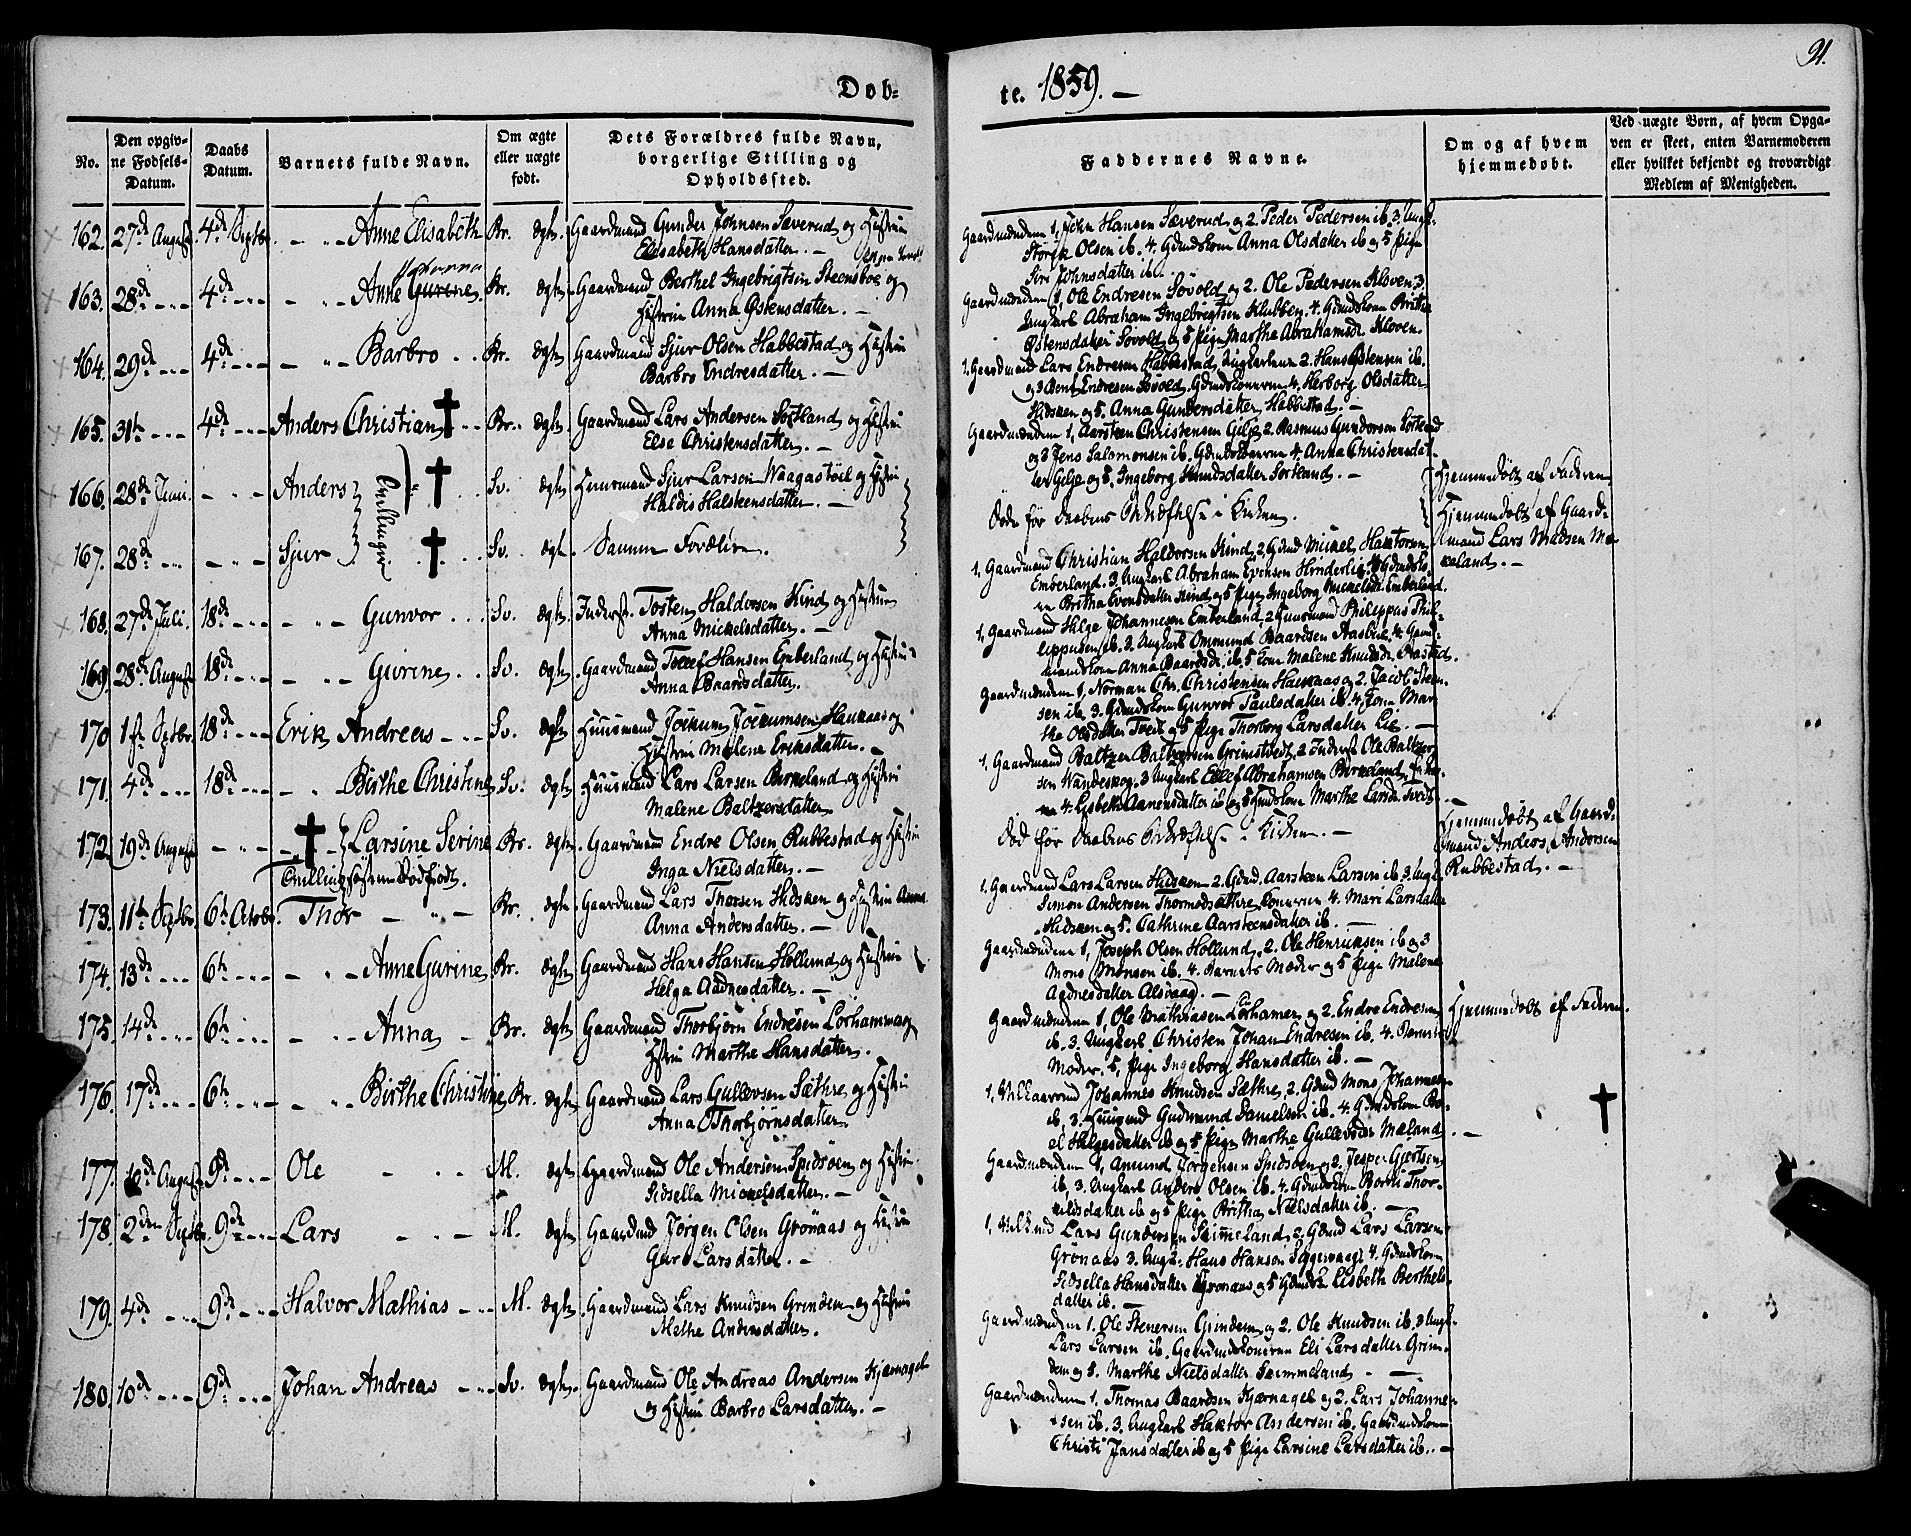 91.
Døb=
te. 1859. —
No.
Den opgiv-
ne Fødsels-
Datum.
Daabs
Datum.
Barnets fulde Navn.
Om ægte
eller uægte
født.
Dets Forældres fulde Navn,
borgerlige Stilling og
Opholdssted.
Faddernes Navne.
Om og af hvem
hjemmedøbt.
Ved uægte Børn, af hvem Opga-
ven er skeet, enten Barnemoderen
eller hvilket bekjendt og troværdigt
Medlem af Menigheden.
162. 27de August 4de Septbr. Anne Elisabeth Br. ægte Gaardmand Gunder Johnsen Sæverud og Hustru
Elisabeth Hansdatter. —
Gaardmændene 1, John Hansen Sæverud og 2. Peder Pedersen ib. 3. Ungk.
Størk Olsen ib. 4. Gdmdskone Anna Olsdatter ib og 5 Pige
Siri Johnsdatter ib.
Johanna
163. 28de 4de Anne Gurine. Br. ægte Gaardmand Berthel Ingebrigtsen Steensboe og
Hustru Anna Østensdatter. —
Gaardmændene 1, Ole Endresen Søvold og 2. Ole Pedersen Kloven, 3.
Ungkarl Abraham Ingebrigtsen Klubben. 4. Gdmdskone Britha
Østensdatter Søvold og 5 Pige Marthe Abrahamsdr. Kloven.
164. 29de 4de Barbro Br. ægte Gaardmand Sjur Olsen Habbestad og Hustru
Barbro Endresdatter. —
1. Gaardmand Lars Endresen Habbestad, Ungkarlene 2. Hans Østensen ib.
og 3 Bent Endresen Søvold, Gdmdskonerne 4. Herborg Olsdatter
Hidsken og 5. Anna Gundersdatter Habbestad. —
165. 31te 4de Anders Christian Br. ægte Gaardmand Lars Andersen Sortland og Hustru
Else Christensdatter. —
Gaardmændene 1, Aarsteen Christensen Gilje 2. Rasmus Gundersen Sortland
og 3 Jens Salomonsen ib. Gdmdskonerne 4. Anna Christensdat-
ter Gilje og 5, Ingeborg Knudsdatter Sortland. —
166. 28de Juni Anders Tvillinger Sv. ægte Huusmand Sjur Larsen Waagastøil og Hustru
Haldis Halsteensdatter. —
Døde før Daabens Bekræftelse i Kirken.
Hjemmedøbt af Faderen
167. 28de Sjur Sv. ægte Samme Forældre.
Hjemmedøbt af Gaard-
mand Lars Madsen Mæ-
eland. —
168. 27de Juli. 18de Gunvor Sv. ægte Inderst. Tosten Haldorsen Hind og Hustru
Anna Mickelsdatter. —
1. Gaardmand Christian Haldorsen Hind, 2, Gdmd Mickel Haktorsen
Emberland. 3. Ungkarl Abraham Evensen Hinderlie. 4. Gdmdsko-
ne Britha Evensdatter Hind og 5 Pige Ingeborg Mickelsdr. Emberland.
169. 28de August 18de Gurine Sv. ægte Gaardmand Tollef Hansen Emberland og Hustru
Anna Baardsdatter.
1, Gaardmand Helge Johannesen Emberland, 2 Huusmand Philippus Phil-
lippusen ib. 3. Ungkarl Ommund Baardsen Aasbue. 4 Gaard-
mandskone Anna Baardsdr. ib. 5 Kone Malene Knudsdr.
170 1ste Septbr. 18de Erik Andreas Sv. ægte Huusmand Jockum Jockumsen Haukaas og
Hustru Malene Eriksdatter. —
Gaardmændene 1, Norman Chr. Christensen Haukaas og 2. Jacob Steen-
sen ib. 3. Gdmdskone Gunvor Paulsdatter ib. 4. Kone Mar-
the Olsdatter Tvedt og 5 Pige Thorborg Larsdatter Lie. —
171. 4de 18de Birthe Christine Sv. ægte Huusmand Lars Larsen Birkeland og Hustru
Malene Baltzersdatter
1. Gaardmand Baltzer Baltzersen Grimstvedt, 2 Inderst Ole Baltzer-
sen Wandeskog, 3. Ungkarl Ellef Abrahamsen Birkeland,
4. Lisbeth Aanensdatter ib og 5 Gmdskone Marthe Larsdr. Tvedt.
172. 19de August Larsine Serine Br. ægte Gaardmand Endre Olsen Rubbestad og Hustru
Tvillingsøsteren Dødfødt. Inga Nielsdatter. —
Død før Daabens Bekræftelse i Kirken. —
Hjemmedøbt af Gaard-
mand Anders Andersen
Rubbestad. —
173. 11te Septbr. 6te Octobr. Thor Br. ægte Gaardmand Lars Thorsen Hidsken og Hustru
Anna Andersdatter. —
1. Gaardmand Lars Larsen Hidsken 2. Gdmd. Aarsteen Larsen ib 3. Ungk.
Simon Andersen Thormodsæthre, Konerne 4. Mari Larsdatter
Hidsken og 5. Cathrine Aarsteensdatter ib. —
174. 13de 6te Anne Gurine Br. ægte Gaardmand Hans Hansen Hollund og Hustru
Helga Aadnesdatter. —
Gaardmændene 1, Joseph Olsen Hollund, 2. Ole Henriksen ib og 3
Mons Monsen ib. 4. Barnets Moder og 5 Pige Malene
Aadnesdatter Alsvaag. —
175 14de 6te Anna Br. ægte Gaardmand Thorbjørn Endresen Lorhammer og
Hustru Marthe Hansdatter. —
Gaardmændene 1, Ole Mathiasen Lorhamer og 2. Endre Endresen
ib. 3. Ungkarl Christen Johan Endresen ib. 4. Barnets
Moder. 5, Pige Ingeborg Hansdatter ib. —
Hjemmedøbt af Faderen.
176. 17de 6te Birthe Christine Br. ægte Gaardmand Lars Gullevsen Sæthre og Hustru
Anna Thorbjørnsdatter.
1, Johannes Knudsen Sæthre, 2. Gdmd Mons Johannes-
ib, 3. Huusmd Gudmund Danielsen ib. 4. Gdmdskone Bo-
el Helgesdatter ib og 5 Pige Marthe Gullevsdr. Mæland. —
177. 10de August 9de Ole M. ægte Gaardmand Ole Andersen Spidsøen og Hustru
Sidsella Mickelsdatter. —
Gaardmændene 1, Amund Jørgensen Spidsøen og 2. Jesper Gjertsen
ib. 3. Ungkarl Anders Olsen ib. 4. Gdmdskone Borte Thor-
kildsdatter ib og 5 Pige Britha Nielsdatter ib. —
178. 2den Septbr. 9de Lars M. ægte Gaardmd Jørgen Olsen Grønaas og Hustru
Guro Larsdatter. —
1, Lars Gundersen Simeland, 2 Gdmd Lars Larsen
Grønaas 3. Ungk. Hans Hansen 4. Gdmdskone
Sidsella Hansdatter Grønaas og 5 Lisbeth Berthels-
datter ib. —
179. 4de 9de Halvor Mathias M. ægte Gaardmand Lars Knudsen Grindem og Hustru
Methe Andersdatter.
Gaardmændene 1. Ole Stenersen Grindem og 2. Ole Knudsen ib. 3 Ungk.
Lars Larsen ib. Gaardmandskonerne Eli Larsdatter Grin-
dem og 5. Marthe Nielsdatter Sømmeland. —
180. 10de 9de Johan Andreas Sv. ægte Gaardmand Ole Andreas Andersen Kjærnagel
og Hustru Barbro Larsdatter. —
Gaardmændene 1. Thomas Baardsen Kjærnagel og 2. Lars Johanne-
sen ib. 3. Ungkarl Haktor Andersen ib. Gaardmdskone
Christi Jansdatter ib og 5 Pige Larsine Larsdatter ib. —